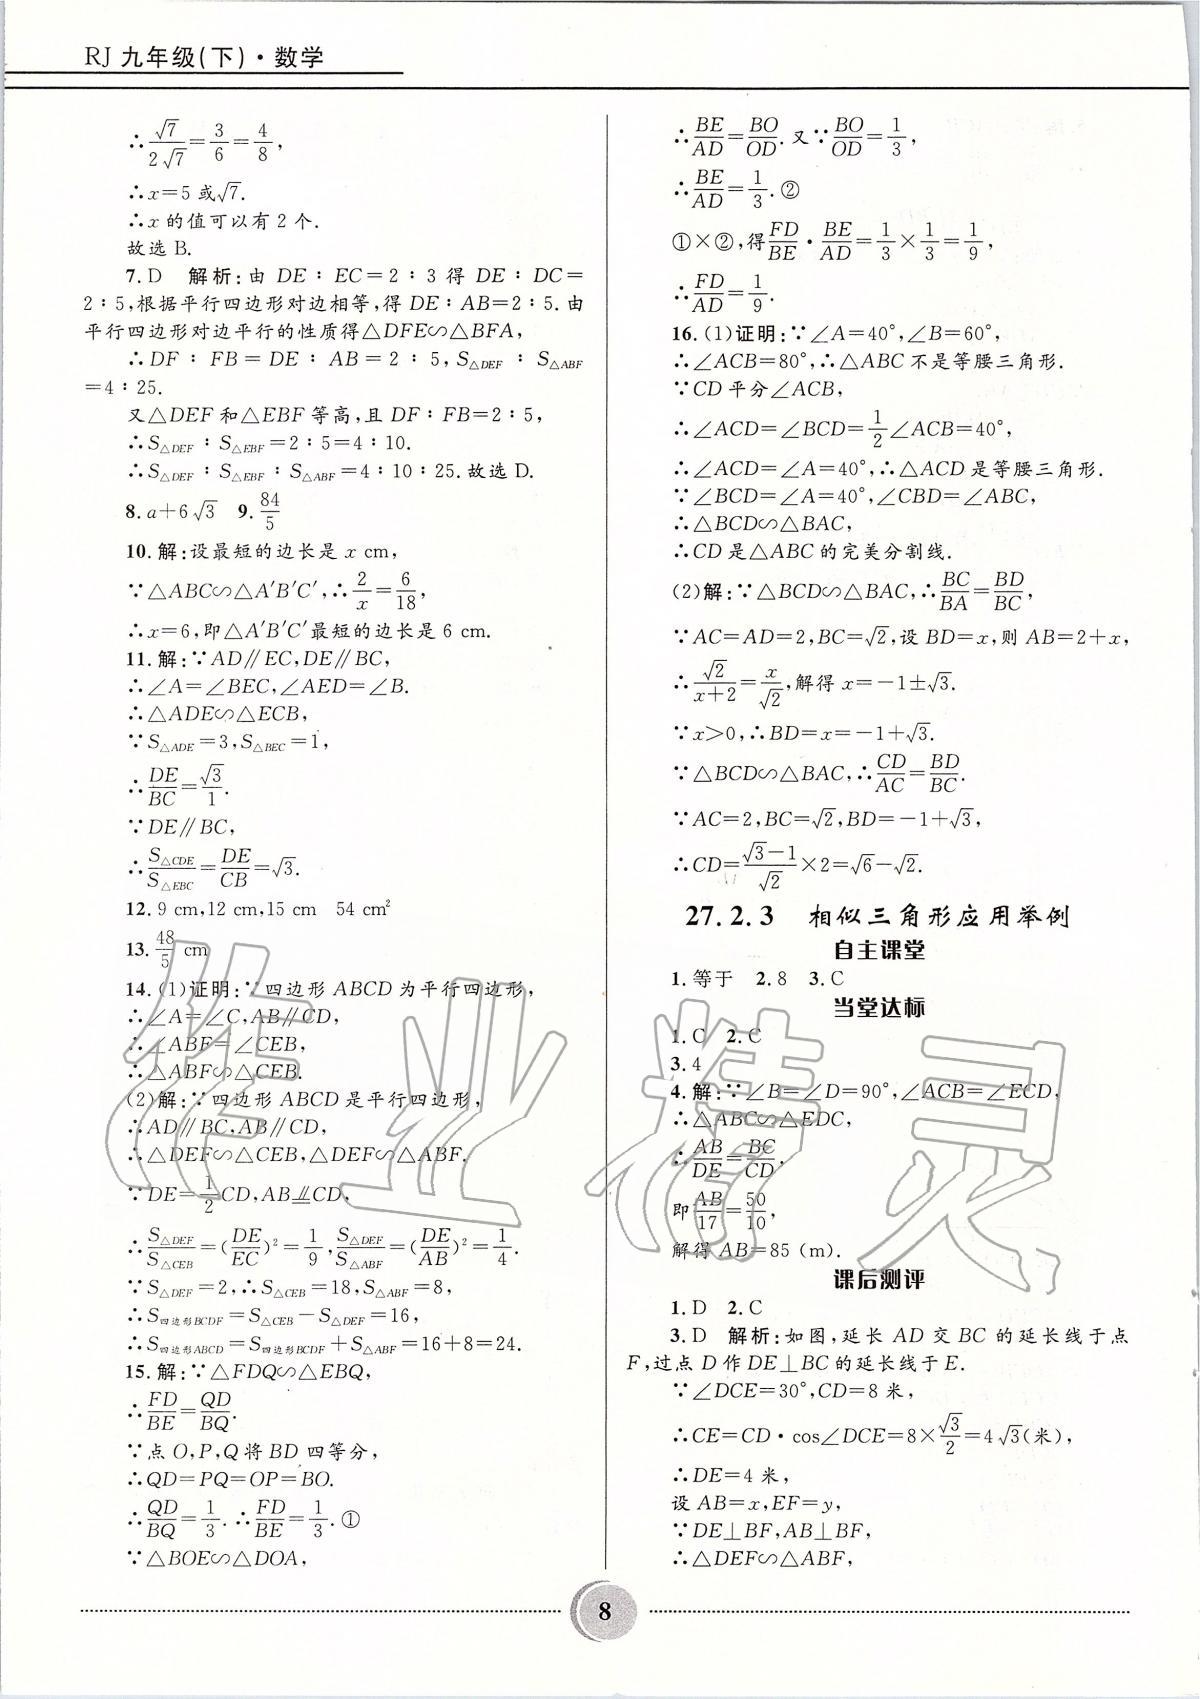 RJ 九年级(下)·数学
∴√7/2√7=3/6=4/8,
∴x=5 或√7.
∴x 的值可以有 2 个.
故选 B.
7. D 解析:由 DE∶EC=2∶3 得 DE∶DC=
2∶5,根据平行四边形对边相等,得 DE∶AB=2∶5.由
平行四边形对边平行的性质得△DFE∽△BFA,
∴DF∶FB=DE∶AB=2∶5,S△DEF∶S△ABF
=4∶25.
又△DEF 和△EBF 等高,且 DF∶FB=2∶5,
∴S△DEF∶S△EBF=2∶5=4∶10.
∴S△DEF∶S△EBF∶S△ABF=4∶10∶25.故选 D.
8. a+6√3 9. 84/5
10. 解:设最短的边长是 x cm,
∵△ABC∽△A′B′C′,∴2/x=6/18,
∴x=6,即△A′B′C′最短的边长是 6 cm.
11. 解:∵AD∥EC,DE∥BC,
∴∠A=∠BEC,∠AED=∠B.
∴△ADE∽△ECB,
∵S△ADE=3,S△BEC=1,
∴DE/BC=√3/1.
∵DE∥BC,
∴S△CDE/S△EBC=DE/CB=√3.
12. 9 cm,12 cm,15 cm 54 cm²
13. 48/5 cm
14. (1)证明:∵四边形 ABCD 为平行四边形,
∴∠A=∠C,AB∥CD,
∴∠ABF=∠CEB,
∴△ABF∽△CEB.
(2)解:∵四边形 ABCD 是平行四边形,
∴AD∥BC,AB∥CD,
∴△DEF∽△CEB,△DEF∽△ABF.
∵DE=1/2CD,AB∥CD,
∴S△DEF/S△CEB=(DE/EC)²=1/9,S△DEF/S△ABF=(DE/AB)²=1/4.
∵S△DEF=2,∴S△CEB=18,S△ABF=8,
∴S四边形BCDF=S△CEB-S△DEF=16,
∴S四边形ABCD=S四边形BCDF+S△ABF=16+8=24.
15. 解:∵△FDQ∽△EBQ,
∴FD/BE=QD/BQ.
∵点 O,P,Q 将 BD 四等分,
∴QD=PQ=OP=BO.
∴QD/BQ=1/3.∴FD/BE=1/3.①
∵△BOE∽△DOA,
∴BE/AD=BO/OD.又∵BO/OD=1/3,
∴BE/AD=1/3.②
①×②,得FD/BE·BE/AD=1/3×1/3=1/9,
∴FD/AD=1/9.
16. (1)证明:∵∠A=40°,∠B=60°,
∴∠ACB=80°,∴△ABC 不是等腰三角形.
∵CD 平分∠ACB,
∴∠ACD=∠BCD=1/2∠ACB=40°,
∴∠ACD=∠A=40°,∴△ACD 是等腰三角形.
∵∠BCD=∠A=40°,∠CBD=∠ABC,
∴△BCD∽△BAC,
∴CD 是△ABC 的完美分割线.
(2)解:∵△BCD∽△BAC,∴BC/BA=BD/BC,
∵AC=AD=2,BC=√2,设 BD=x,则 AB=2+x,
∴√2/x+2=x/√2,解得 x=-1±√3.
∵x>0,∴BD=x=-1+√3.
∵△BCD∽△BAC,∴CD/AC=BD/BC.
∵AC=2,BC=√2,BD=-1+√3,
∴CD=√3-1/√2×2=√6-√2.
27.2.3 相似三角形应用举例
自主课堂
1. 等于 2. 8 3. C
当堂达标
1. C 2. C
3. 4
4. 解:∵∠B=∠D=90°,∠ACB=∠ECD,
∴△ABC∽△EDC,
∴AB/DE=BC/CD.
即AB/17=50/10,
解得 AB=85 (m).
课后测评
1. D 2. C
3. D 解析:如图,延长 AD 交 BC 的延长线于点
F,过点 D 作 DE⊥BC 的延长线于 E.
∵∠DCE=30°,CD=8 米,
∴CE=CD·cos∠DCE=8×√3/2=4√3(米),
∴DE=4 米,
设 AB=x,EF=y,
∵DE⊥BF,AB⊥BF,
∴△DEF∽△ABF,
8
作业精灵